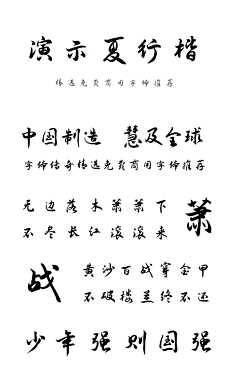 演示夏行楷
精选免费商用字体推荐
中国制造 慧及全球
字体传奇精选免费商用字体推荐
无边落木萧萧下
不尽长江滚滚来
萧
战
黄沙百战穿金甲
不破楼兰终不还
少年强则国强